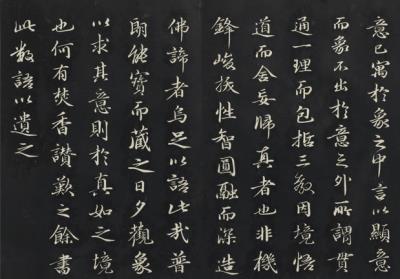 意已寓於象之中言以顯意
而象不出於意之外所謂貫
通一理而包括三教因境悟
道而舍妄歸真者也非機
鋒峻拔性智圓融而深造
佛諦者烏足以語此哉普
朗能寳而藏之日夕觀象
以求其意則於真如之境
也何有焚香讚歎之餘書
此數語以遺之